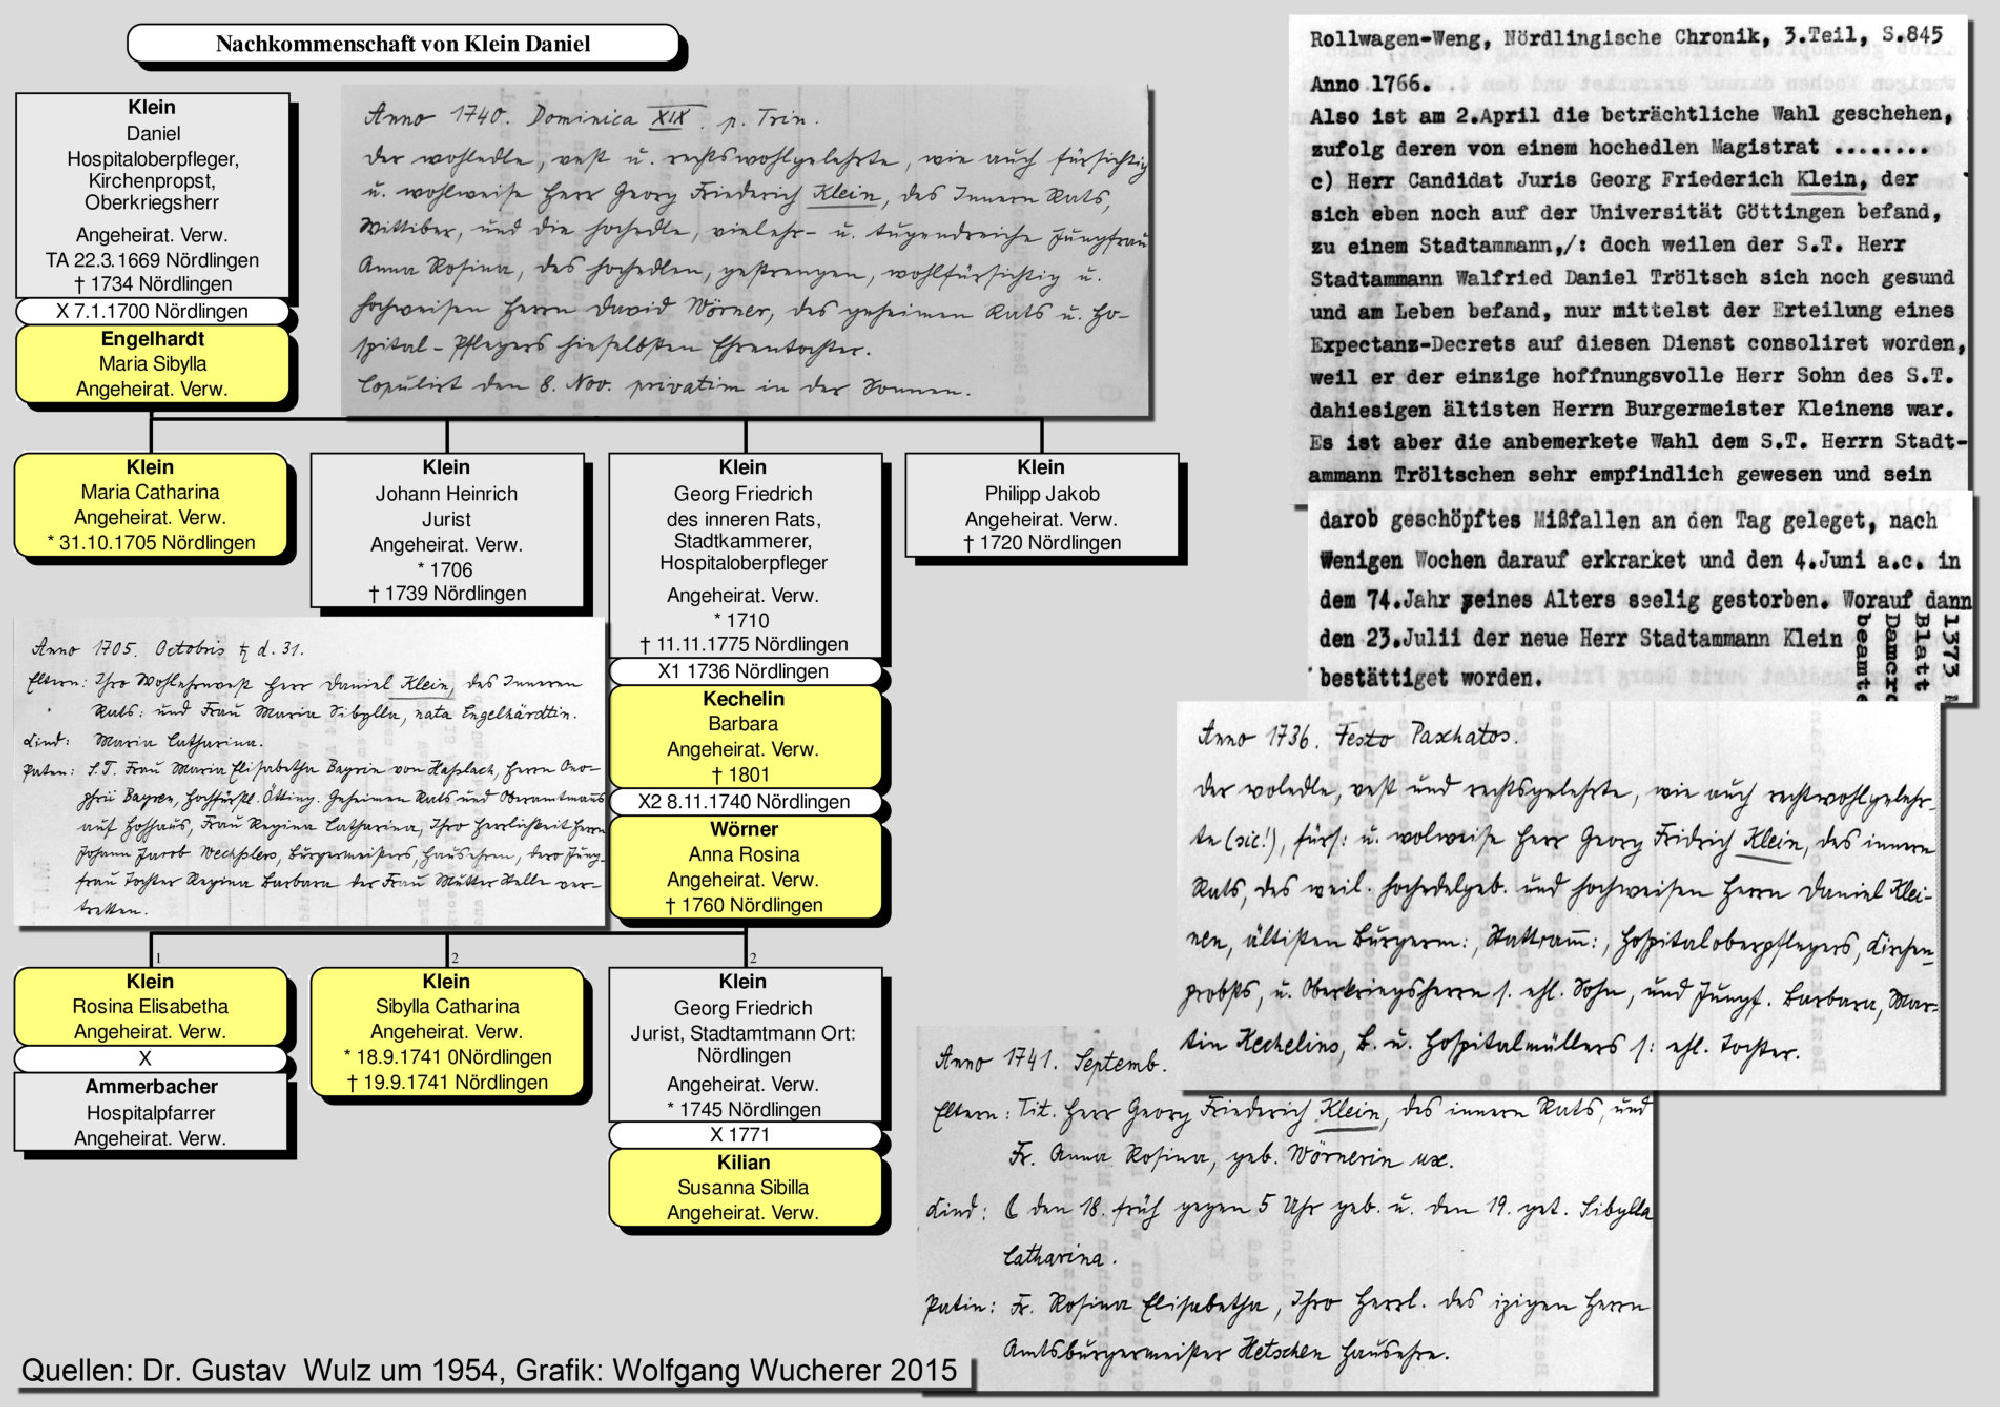 Nachkommenschaft von Klein Daniel
Klein
Daniel
Hospitaloberpfleger,
Kirchenpropst,
Oberkriegsherr
Angeheirat. Verw.
TA 22.3.1669 Nördlingen
† 1734 Nördlingen
X 7.1.1700 Nördlingen
Engelhardt
Maria Sibylla
Angeheirat. Verw.
Anno 1740. Dominica XIX. p. Trin.
Der wohledle, vest u. rechtswohlgelehrte, wie auch fürsichtig
u. wohlweise Herr Georg Friederich Klein, des Innern Rats,
Wittiber, und die hochedle, vielehr- u. tugendreiche Jungfrau
Anna Rosina, des hochedlen, gestrengen, wohlfürsichtig u.
hochweisen Herrn David Wörner, des geheimen Rats u. Ho-
spital-Pflegers hieselbsten Ehrentochter.
Copulirt den 8. Nov. privatim in der Sonnen.
Rollwagen-Weng, Nördlingische Chronik, 3.Teil, S.845
Anno 1766.
Also ist am 2.April die beträchtliche Wahl geschehen,
zufolg deren von einem hochedlen Magistrat .........
c) Herr Candidat Juris Georg Friederich Klein, der
sich eben noch auf der Universität Göttingen befand,
zu einem Stadtammann,/: doch weilen der S.T. Herr
Stadtammann Walfried Daniel Tröltsch sich noch gesund
und am Leben befand, nur mittelst der Erteilung eines
Expectanz-Decrets auf diesen Dienst consoliret worden,
weil er der einzige hoffnungsvolle Herr Sohn des S.T.
dahiesigen ältisten Herrn Burgermeister Kleinens war.
Es ist aber die anbemerkete Wahl dem S.T. Herrn Stadt-
ammann Tröltschen sehr empfindlich gewesen und sein
darob geschöpftes Mißfallen an den Tag geleget, nach
Wenigen Wochen darauf erkranket und den 4.Juni a.c. in
dem 74.Jahr seines Alters seelig gestorben. Worauf dann
den 23.Julii der neue Herr Stadtammann Klein
bestättiget worden.
1373
Blatt
beamte
Klein
Maria Catharina
Angeheirat. Verw.
* 31.10.1705 Nördlingen
Klein
Johann Heinrich
Jurist
Angeheirat. Verw.
* 1706
† 1739 Nördlingen
Klein
Georg Friedrich
des inneren Rats,
Stadtkammerer,
Hospitaloberpfleger
Angeheirat. Verw.
* 1710
† 11.11.1775 Nördlingen
X1 1736 Nördlingen
Kechelin
Barbara
Angeheirat. Verw.
† 1801
X2 8.11.1740 Nördlingen
Wörner
Anna Rosina
Angeheirat. Verw.
† 1760 Nördlingen
Klein
Philipp Jakob
Angeheirat. Verw.
† 1720 Nördlingen
Anno 1705. Octobris d. 31.
Eltern: Ihro Wohlehrnvest Herr Daniel Klein, des Inneren
Rats: und Frau Maria Sibylla, nata Engelhärdtin.
Kind: Maria Catharina.
Paten: S.T. Frau Maria Elisabetha Bayrin von Haslach, Herrn Ono-
phrii Bayren, Hochfürstl. Ötting. Geheimen Rats und Oberamtmanns
auf Hohhaus, Frau Regina Catharina, Ihro Herrlichkeit Herrn
Johann Jacob Wechslers, Burgermeisters, Hausehren, dero Jung-
frau Tochter Regina Barbara der Frau Mutter Stelle ver-
tretten.
Anno 1736. Festo Paschatos.
Der woledle, vest und rechtsgelehrte, wie auch rechtwohlgelehr-
te (sic!), fürs: u. wolweise Herr Georg Fridrich Klein, des innern
Rats, des weil. hochedelgeb. und hochweisen Herrn Daniel Klei-
nen, ältisten Burgerm:, Stattam̅:, Hospitaloberpflegers, Kirchen-
probsts, u. Oberkriegsherrn s. ehl. Sohn, und Jungf. Barbara, Mar-
tin Kechelins, B. u. Hospitalmüllers s: ehl. Tochter.
1
Klein
Rosina Elisabetha
Angeheirat. Verw.
X
Ammerbacher
Hospitalpfarrer
Angeheirat. Verw.
2
Klein
Sibylla Catharina
Angeheirat. Verw.
* 18.9.1741 0Nördlingen
† 19.9.1741 Nördlingen
2
Klein
Georg Friedrich
Jurist, Stadtamtmann Ort:
Nördlingen
Angeheirat. Verw.
* 1745 Nördlingen
X 1771
Kilian
Susanna Sibilla
Angeheirat. Verw.
Anno 1741. Septemb.
Eltern: Tit. Herr Georg Friederich Klein, des innern Rats, und
Fr. Anna Rosina, geb. Wörnerin ux.
Kind: den 18. früh gegen 5 Uhr geb. u. den 19. get. Sibylla
Catharina.
Patin: Fr. Rosina Elisabetha, Ihro Herrl. des izigen Herrn
Amtsburgermeister Hetschen Hausehre.
Quellen: Dr. Gustav Wulz um 1954, Grafik: Wolfgang Wucherer 2015